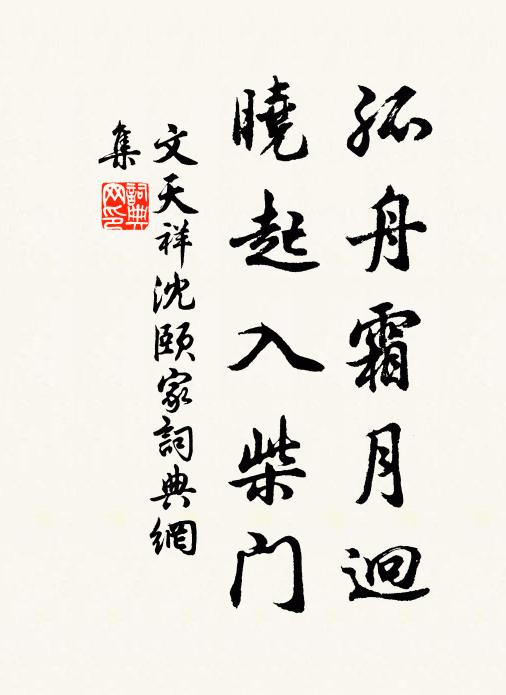 孤舟霜月迥
曉起入柴門
文天祥沈頤家詞典網
集
詞典網印